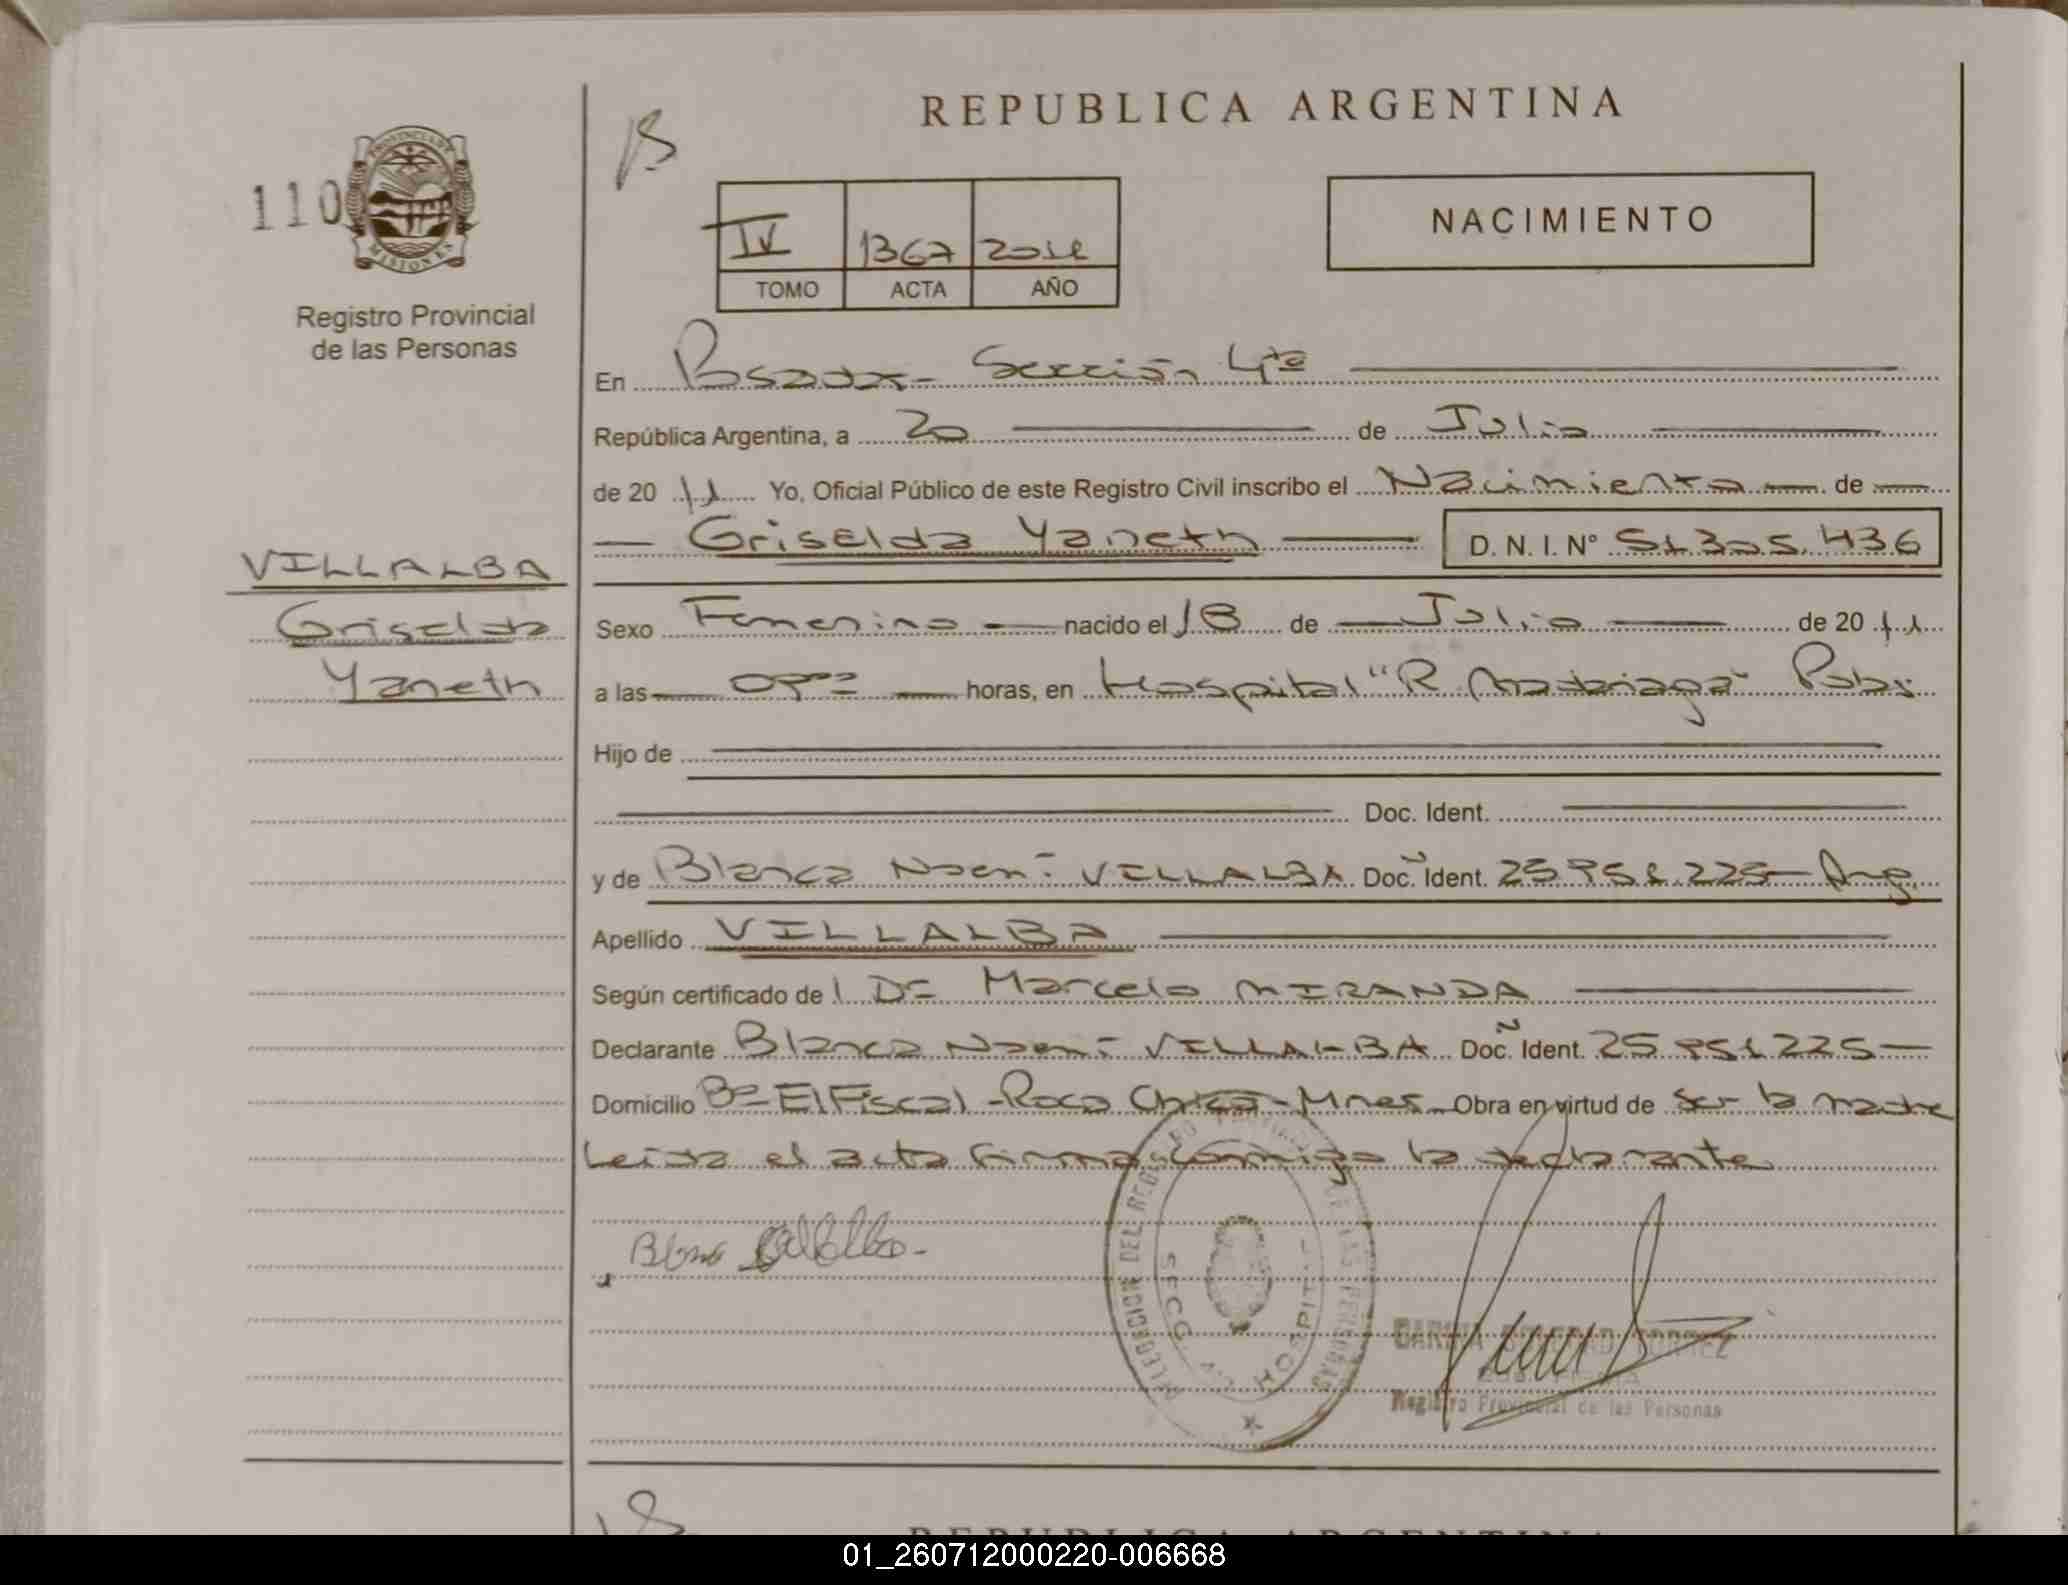 REPUBLICA ARGENTINA
110
PROVINCIA DE MISIONES
Registro Provincial
de las Personas
NACIMIENTO
IV 1367 2011
TOMO ACTA AÑO
En Psadas - Sección 4ta
República Argentina, a 20 de Julio
de 20 11 Yo, Oficial Público de este Registro Civil inscribo el Nacimiento de
Griselda Yaneth D. N. I. Nº 51.305.436
VILLALBA
Griselda
Yaneth
Sexo Femenino nacido el 18 de Julio de 20 11
a las horas, en Hospital "R. Madariaga" Pdas
Hijo de
Doc. Ident.
y de Blanca Noemí VILLALBA Doc. Ident. 25.951.225 - Arg.
Apellido VILLALBA
Según certificado de l Dr Marcelo MIRANDA
Declarante Blanca Noemí VILLALBA Doc. Ident. 25.951.225
Domicilio Bº El Fiscal - Roca Chica - Mnes Obra en virtud de ser la madre
Leída el acta firma conmigo la declarante
DIRECCION DEL REGISTRO PROVINCIAL DE LAS PERSONAS
SECC. HOSPITAL
Registro Provincial de las Personas
REPUBLICA ARGENTINA
01_260712000220-006668